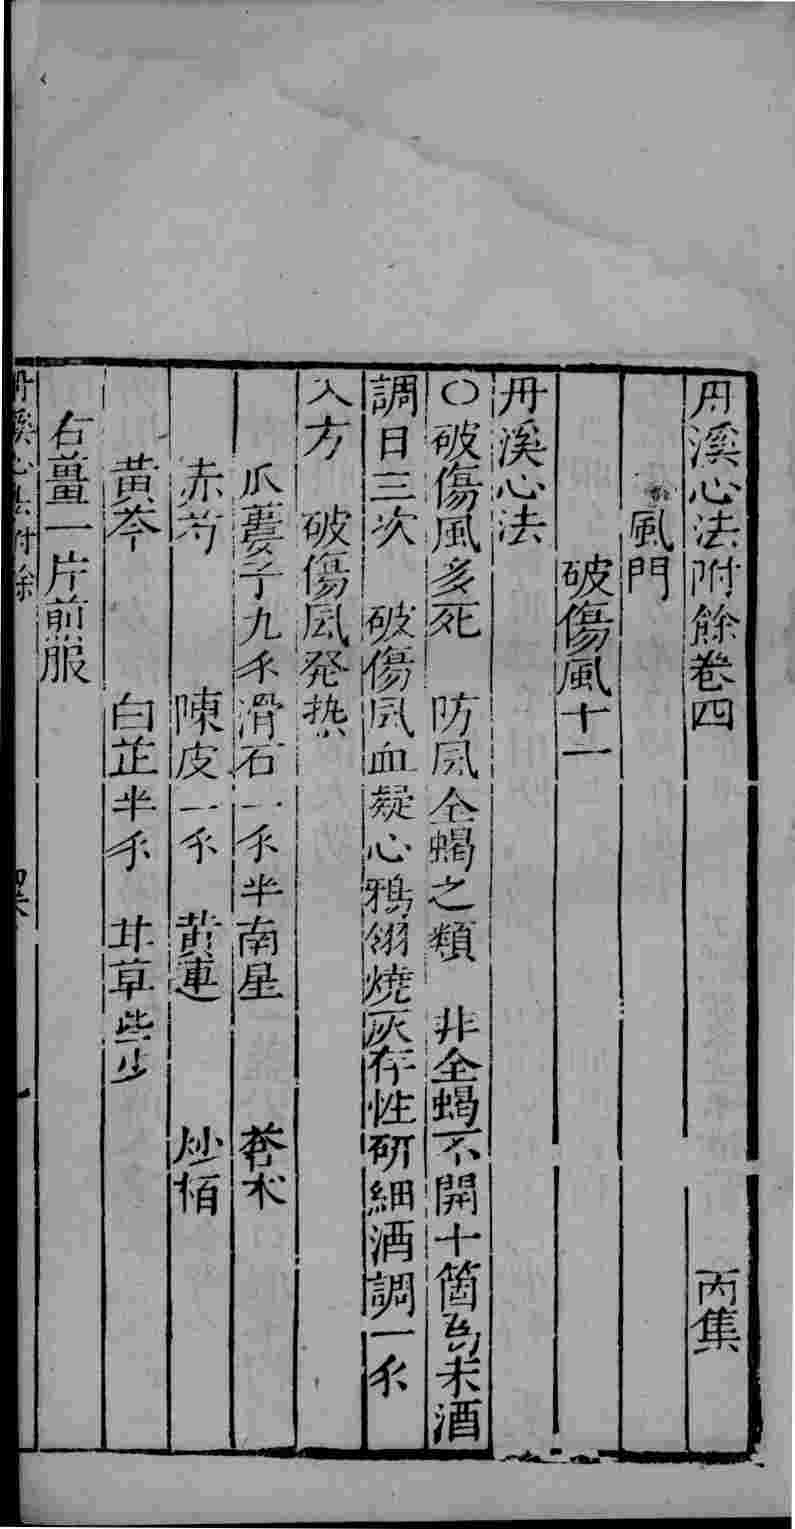 丹溪心法附餘卷四 丙集
風門
破傷風十一
丹溪心法
○破傷風多死 防風全蝎之類 非全蝎不開十箇為末酒
調日三次 破傷風血凝心鴉翎燒灰存性研細酒調一錢
入方 破傷風発热
瓜蔞子九錢滑石一錢半南星 蒼朮
赤芍 陳皮一錢 黄連 炒栢
黄芩 白芷半錢 甘草些少
右薑一片煎服
丹溪心法附餘